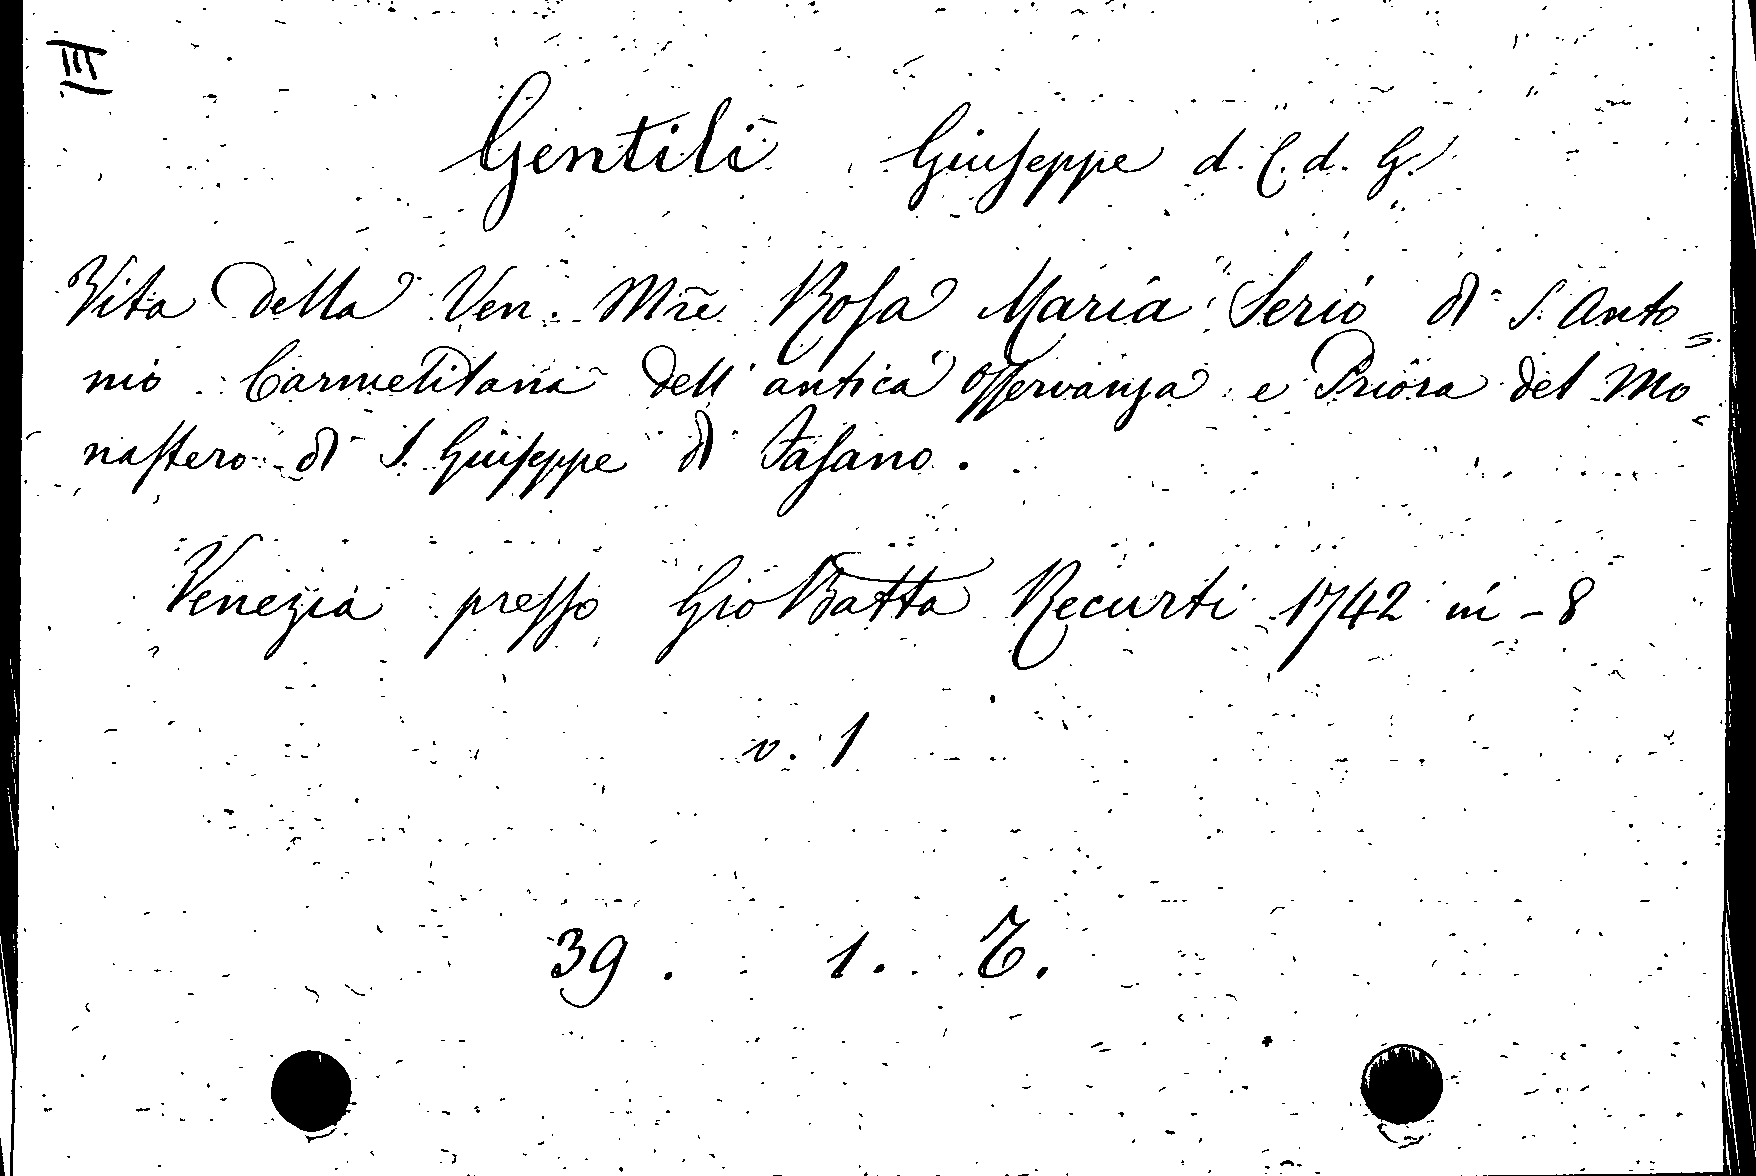 III
Gentili Giuseppe d. C. d. G.
Vita della Ven. Mre Rosa Maria Serio di S. Anto=
nio Carmelitana dell'antica osservanza e Priora del Mo=
nastero di S. Giuseppe di Fasano.
Venezia presso Gio Batta Recurti 1742 in-8
v. 1
39. 1.